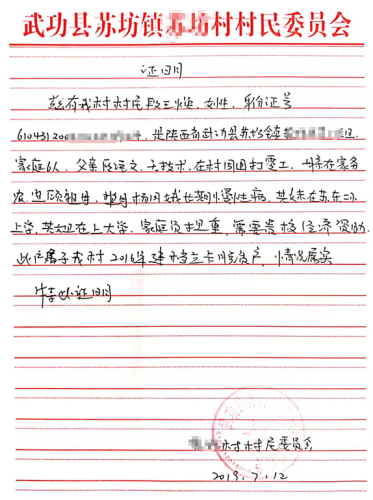 武功县苏坊镇苏坊村村民委员会
证明
兹有我村村民段王焕，女性，身份证号
610431200，是陕西省武功县苏坊镇
家庭6人，父亲段，无技术，在村周围打零工，母亲在家务
农，照顾祖母，祖母杨长期慢性病，其妹在苏东
上学，其如在上大学，家庭负担重，需要贵校经济资助。
此户属于我村2016年建档立卡贫户，情况属实
特此证明
村村民委员会
2019.7.12